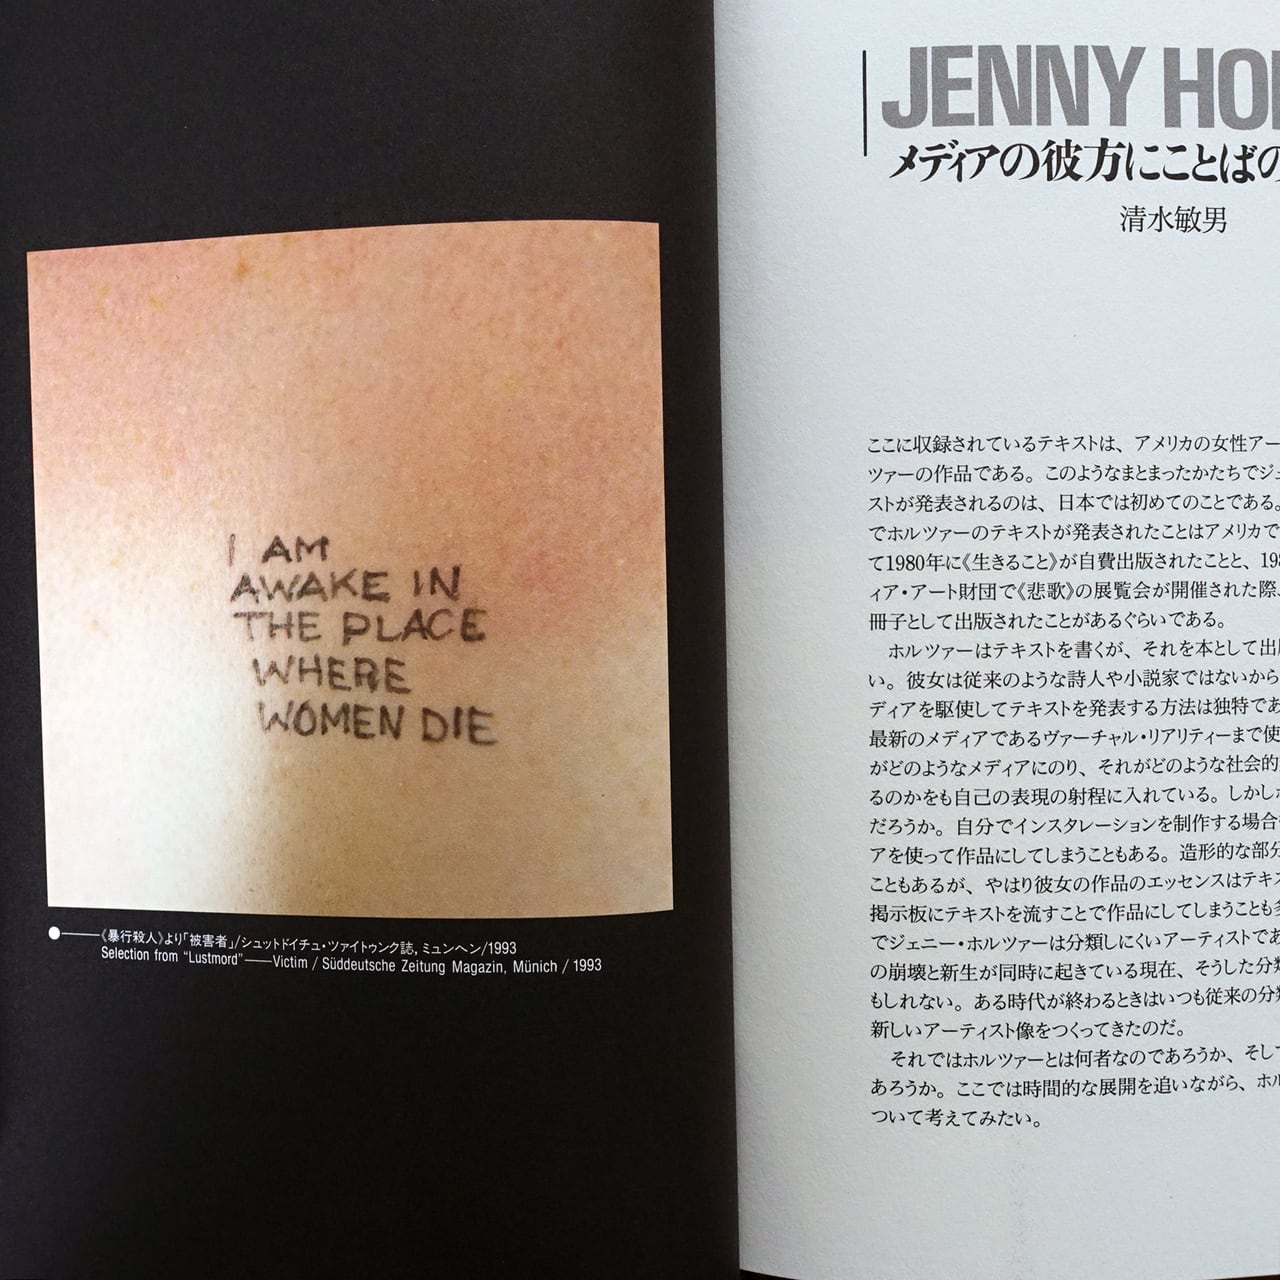 I AM
AWAKE IN
THE PLACE
WHERE
WOMEN DIE
《暴行殺人》より「被害者」/シュットドイチュ・ツァイトゥンク誌, ミュンヘン/1993
Selection from “Lustmord”——Victim / Süddeutsche Zeitung Magazin, Münich / 1993
JENNY HO
メディアの彼方にことばの
清水敏男
ここに収録されているテキストは、アメリカの女性アー
ツァーの作品である。このようなまとまったかたちでジェ
ストが発表されるのは、日本では初めてのことである。
でホルツァーのテキストが発表されたことはアメリカで
て1980年に《生きること》が自費出版されたことと、198
ィア・アート財団で《悲歌》の展覧会が開催された際、
冊子として出版されたことがあるぐらいである。
ホルツァーはテキストを書くが、それを本として出
い。彼女は従来のような詩人や小説家ではないから
ディアを駆使してテキストを発表する方法は独特であ
最新のメディアであるヴァーチャル・リアリティーまで使
がどのようなメディアにのり、それがどのような社会的
るのかをも自己の表現の射程に入れている。しかし
だろうか。自分でインスタレーションを制作する場合
アを使って作品にしてしまうこともある。造形的な部分
こともあるが、やはり彼女の作品のエッセンスはテキス
掲示板にテキストを流すことで作品にしてしまうことも多
でジェニー・ホルツァーは分類しにくいアーティストであ
の崩壊と新生が同時に起きている現在、そうした分類
もしれない。ある時代が終わるときはいつも従来の分類
新しいアーティスト像をつくってきたのだ。
それではホルツァーとは何者なのであろうか、そして
あろうか。ここでは時間的な展開を追いながら、ホル
ついて考えてみたい。